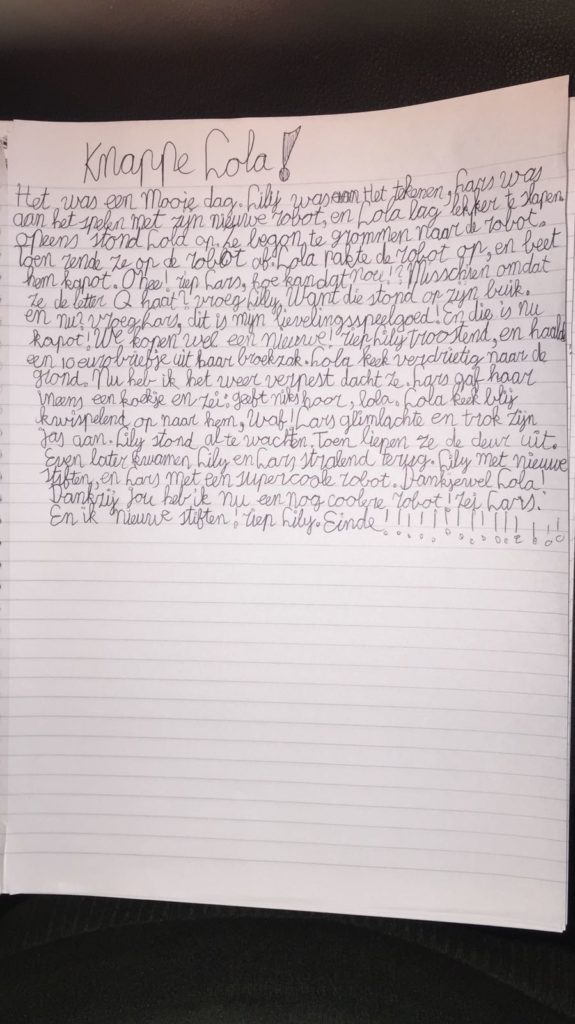 Knappe Lola!
Het was een Mooie dag. Lily was aan Het tekenen, Lars was
aan het spelen met zijn nieuwe robot, en Lola lag lekker te slapen.
Opeens stond Lola op. Ze begon te grommen naar de robot.
Toen rende ze op de robot af. Lola pakte de robot op, en beet
hem kapot. O nee! riep Lars, hoe kan dat nou!? Misschien omdat
ze de letter Q haat? vroeg Lily. Want die stond op zijn buik.
en nu? vroeg Lars, dit is mijn lievelingsspeelgoed! En die is nu
kapot! We kopen wel een nieuwe! riep Lily troostend, en haalde
een 10 eurobriefje uit haar broekzak. Lola keek verdrietig naar de
grond. Nu heb ik het weer verpest dacht ze. Lars gaf haar
ineens een koekje en zei: geeft niks hoor, lola. Lola keek blij
kwispelend op naar hem, Waf! Lars glimlachte en trok zijn
jas aan. Lily stond al te wachten. Toen liepen ze de deur uit.
Even later kwamen Lily en Lars stralend terug. Lily met nieuwe
stiften, en Lars met een supercoole robot. Dankjewel Lola!
Dankzij jou heb ik nu een nog coolere robot! zei Lars.
En ik nieuwe stiften. riep Lily. Einde!!!!!!!!!!!!!